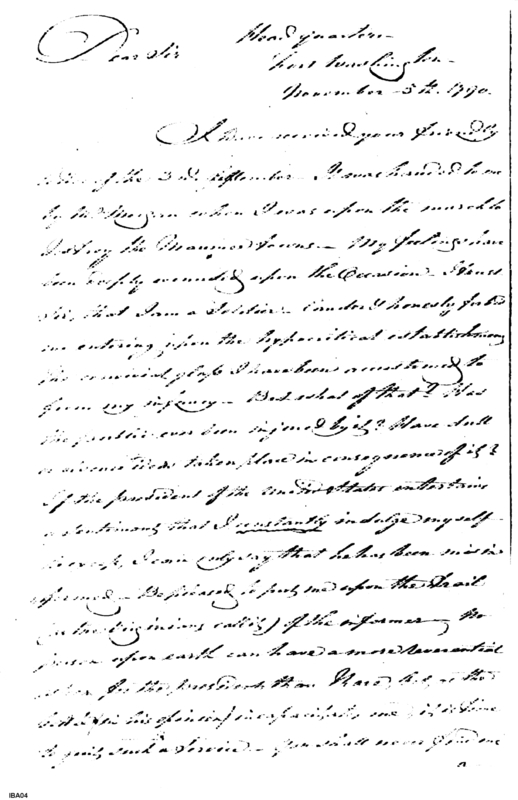 Dear Sir
Head quarters
Fort Washington
November 5th. 1790.
I have received your friendly
letter of the 3rd. September. It was handed to me
by Mr. Morgan when I was upon the march to
destroy the Maumee towns. My feelings have
been deeply wounded upon the Occasion. I trust
Sir, that I am a Soldier. Candor & honesty forbid
me entering upon the hypocritical establishment
The convivial glass I have been accustomed to
from my infancy. But what of that? Has
the public ever been injured by it? Have dull
or taken place in consequence of it?
If the president of the United States entertains
a sentiment that I constantly indulge myself
in excess, I can only say that he has been misin
formed. Be pleased to put me upon the trail
(as the Virginians call it) of the informer. No
person upon earth can have a more Reverential
for the president than Harmar
in his opinion incapacitates me, it is time
to quit such a Service. You shall never find me
IBA04